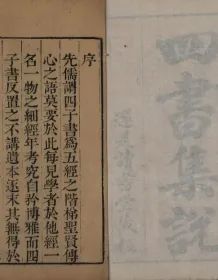 序
先儒謂四子書為五經之階梯聖賢傳
心之語莫要於此每見學者於他經一
名一物之細經年考究自矜博雅而四
子書反置之不講遺本逐末其無得於
四書集說